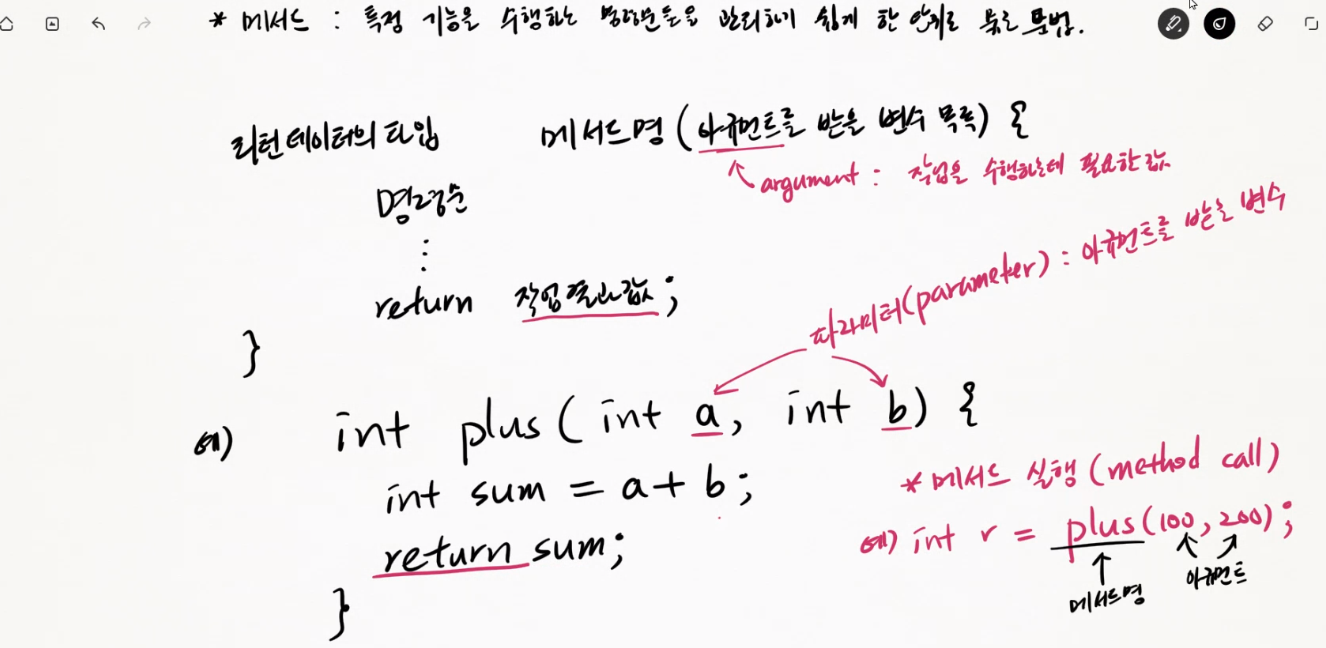 * 메서드 : 특정 기능을 수행하는 명령문들을 관리하기 쉽게 한 단위로 묶은 문법.
리턴 데이터의 타입 메서드명 (아규먼트를 받을 변수 목록) {
argument : 작업을 수행하는데 필요한 값
명령문
⋮
return 작업 결과 값 ;
}
파라미터(parameter) : 아규먼트를 받는 변수
예) int plus ( int a, int b) {
int sum = a + b ;
return sum;
}
* 메서드 실행 (method call)
예) int r = plus(100, 200) ;
메서드명
아규먼트